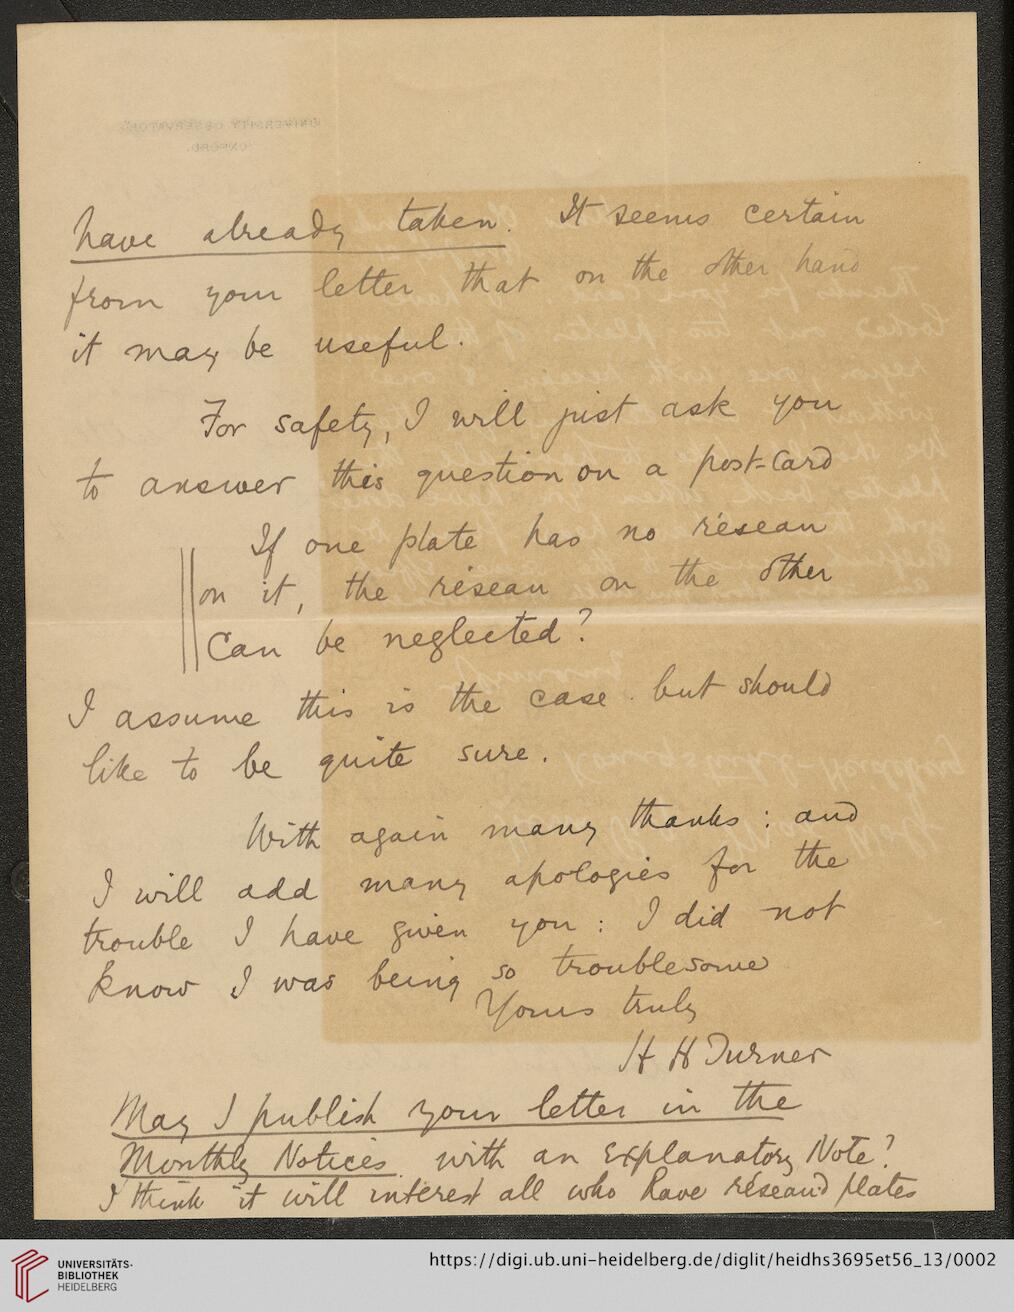 have already taken. It seems certain
from your letter that on the other hand
it may be useful.
For safety, I will just ask you
to answer this question on a post-card
If one plate has no réseau
on it, the réseau on the other
can be neglected?
I assume this is the case but should
like to be quite sure.
With again many thanks: and
I will add many apologies for the
trouble I have given you: I did not
know I was being so troublesome
Yours truly
H H Turner
May I publish your letter in the
Monthly Notices with an Explanatory Note?
I think it will interest all who have réseau'd plates
UNIVERSITÄTS-
BIBLIOTHEK
HEIDELBERG
https://digi.ub.uni-heidelberg.de/diglit/heidhs3695et56_13/0002